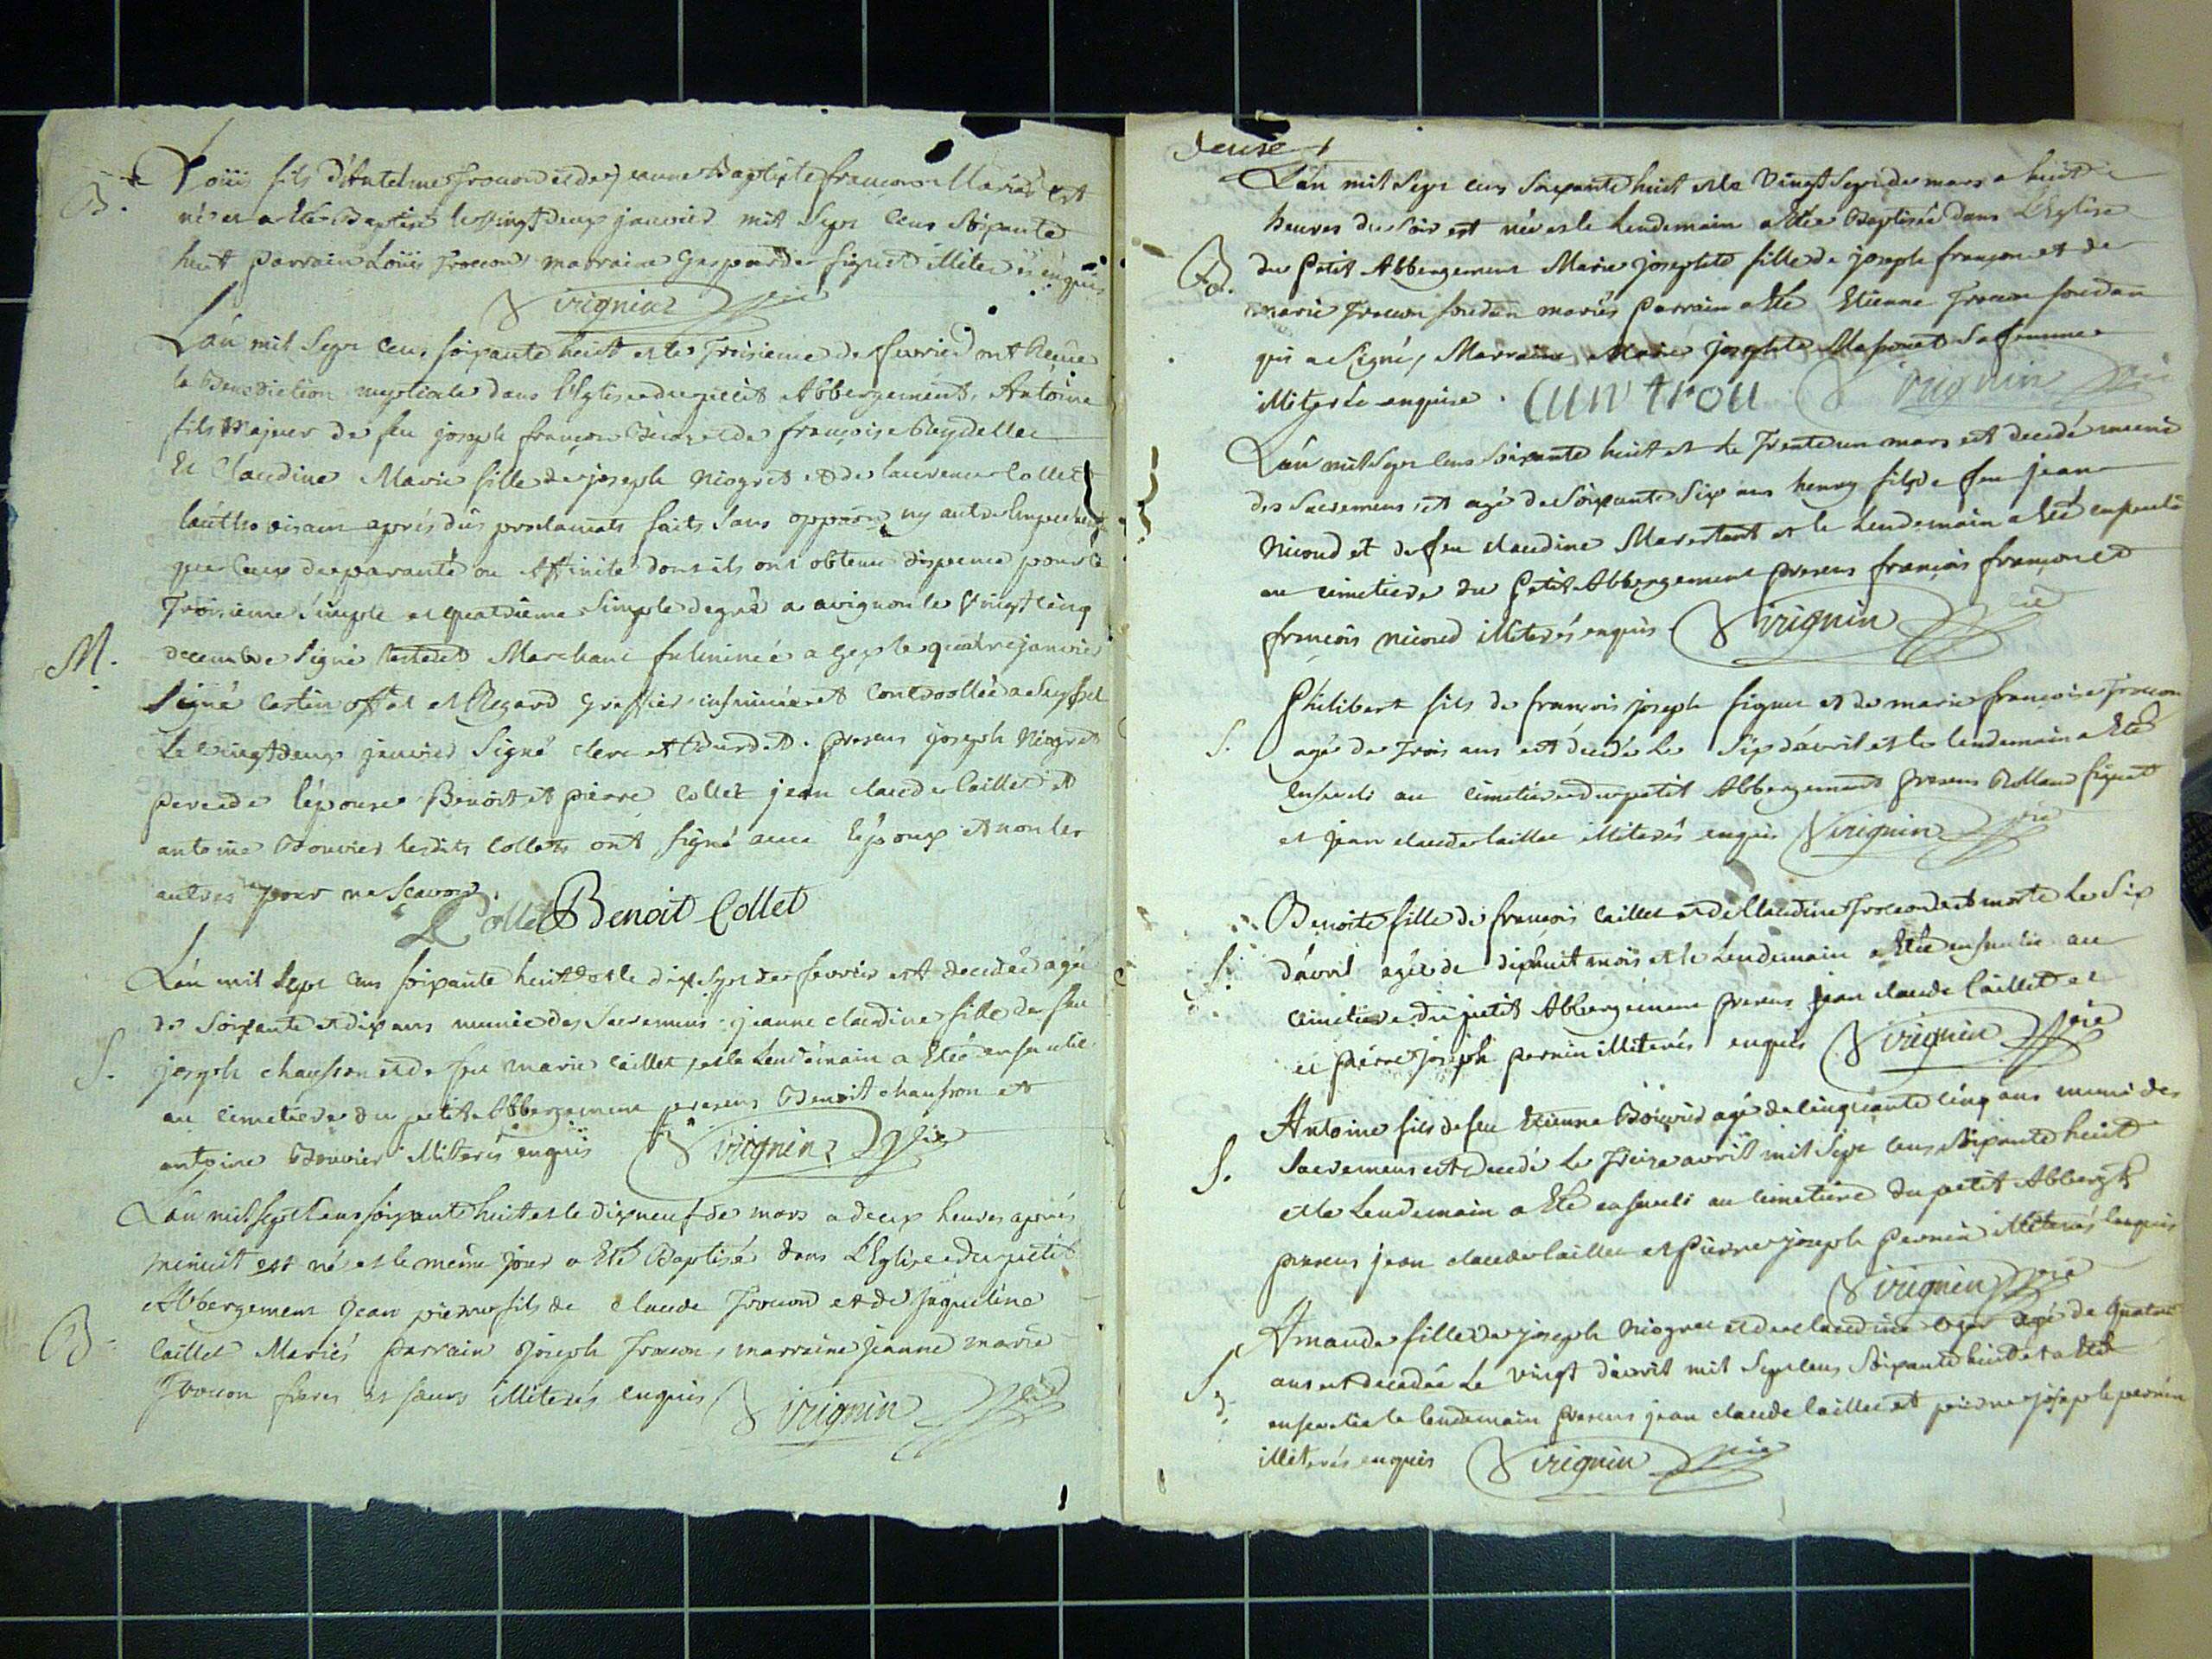 B. Loüis fils d'Antelme Troccon et de jeanne Baptiste françon Mariés est
né et a Eté Baptisé le vingt deux janvier mil Sept Cens Soixante
huit parrain Loüis Troccon, marraine Gasparde figuet illiterés enquis
Virignin
L'an mil Sept Cens soixante huit et le Troisieme de fevrier ont Receu
la Benediction nuptiale dans l'Eglise du petit Abbergement, Antoine
fils Majeur de feu joseph françon et de françoise Reydellet
Et Claudine Marie fille de joseph Niogret et de laurence Collet
aprés dûs proclamats faits Sans opposon ny autre Empechent
que Ceux de paranté ou Affinité dont ils ont obtenu dispence pour le
Troisieme Simple et quatrieme Simple degré a avignon le Vingt Cinq
M. decembre Signé et Marchand fulminée a Gex le quatre janvier
Signé Castin offal et Regard Greffier insinuée et Controollée a Seyssel
Le vingt deux janvier Signé clerc et Burdet. presens joseph Niogret
pere de l'épouse Benoit et pierre Collet jean claude Caillet et
antoine Bouvier lesdits Collets ont Signé avec l'époux et non les
autres pour ne Scavoir.
Collet Benoit Collet
L'an mil Sept Cens soixante huit et le dix Sept de fevrier est decedée agée
de Soixante et dix ans munie des Sacremens jeanne claudine fille de feu
S. joseph chausson et de feu marie Caillet, et le Lendemain a Eté ensevelie
au Cimetiere du petit Abbergement presens Benoit chausson et
antoine Bouvier illiterés enquis Virignin
L'an mil sept Cens soixante huit et le dix neuf de mars a deux heures aprés
minuit est né et le même jour a Eté Baptisé dans L'Eglise du petit
Abbergement Jean pierre fils de Claude Troccon et de Jaqueline
B. Caillet Mariés parrain Joseph Troccon, marraine Jeanne marie
Troccon freres et soeurs illiterés enquis Virignin
L'an mil Sept Cens Soixante huit et le Vingt Sept de mars a huit
heures du Soir est née et le Lendemain a Etée Baptisée dans L'Eglise
B. du Petit Abbergement Marie josephte fille de joseph françon et de
marie Troccon soudan mariés Parrain a Eté Etienne Troccon soudan
qui a Signé, Marraine Marie josephte Massonet Sa femme
illiterée enquise. Virignin
L'an mil Sept Cens Soixante huit et le Trente un mars est decedé muni
des Sacremens, et agé de Soixante Six ans henry fils de feu jean
Nicoud et de feu claudine et le Lendemain a Eté enseveli
au cimetiere du Petit Abbergement presens françois françon et
françois nicoud illiterés enquis Virignin
Philibert fils de françois joseph figuet et de marie françoise Troccon
S. agé de Trois ans est decedé Le Six d'avril et le lendemain a Eté
enseveli au Cimetiere du petit Abbergement presens Rolland figuet
et Jean claude Caillet illiterés enquis Virignin
Benoite fille de françois Caillet et de Claudine Troccon est morte Le Six
S. d'avril agée de dixhuit mois et le Lendemain a Etée ensevelie au
Cimetiere du petit Abbergement presens Jean claude Caillet et
et pierre joseph pernin illiterés enquis Virignin
Antoine fils de feu Etienne Bouvier agé de Cinquante Cinq ans muni des
S. Sacremens est decedé Le Treize avril mil Sept Cens Soixante huit
et le Lendemain a Eté enseveli au Cimetiere du petit Abbergt
presens jean claude Caillet et Pierre joseph pernin illiterés Enquis
Virignin
Amande fille de joseph Niogret et de claudine agé de quatre
S. ans est decedée Le vingt d'avril mil Sept Cens Soixante huit et a Eté
ensevelie le lendemain presens jean claude Caillet et pierre joseph pernin
illiterés enquis Virignin